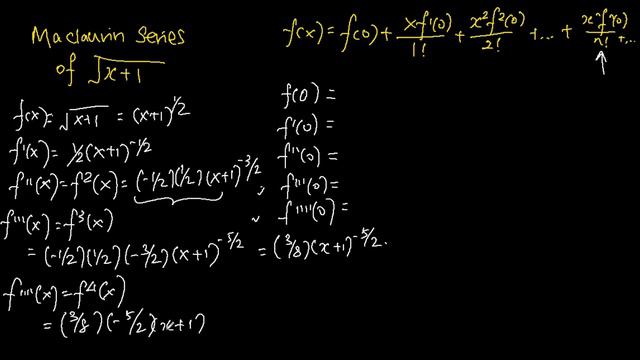 Maclaurin Series
of √(x+1)
f(x) = f(0) + xf'(0)/1! + x²f²(0)/2! + ... + xⁿfⁿ(0)/n! + ...
f(x) = √(x+1) = (x+1)^1/2
f'(x) = 1/2(x+1)^-1/2
f''(x) = f²(x) = (-1/2)(1/2)(x+1)^-3/2
f'''(x) = f³(x)
= (-1/2)(1/2)(-3/2)(x+1)^-5/2 = (3/8)(x+1)^-5/2
f''''(x) = f⁴(x)
= (3/8)(-5/2)(x+1)
f(0) =
f'(0) =
f''(0) =
f'''(0) =
f''''(0) =